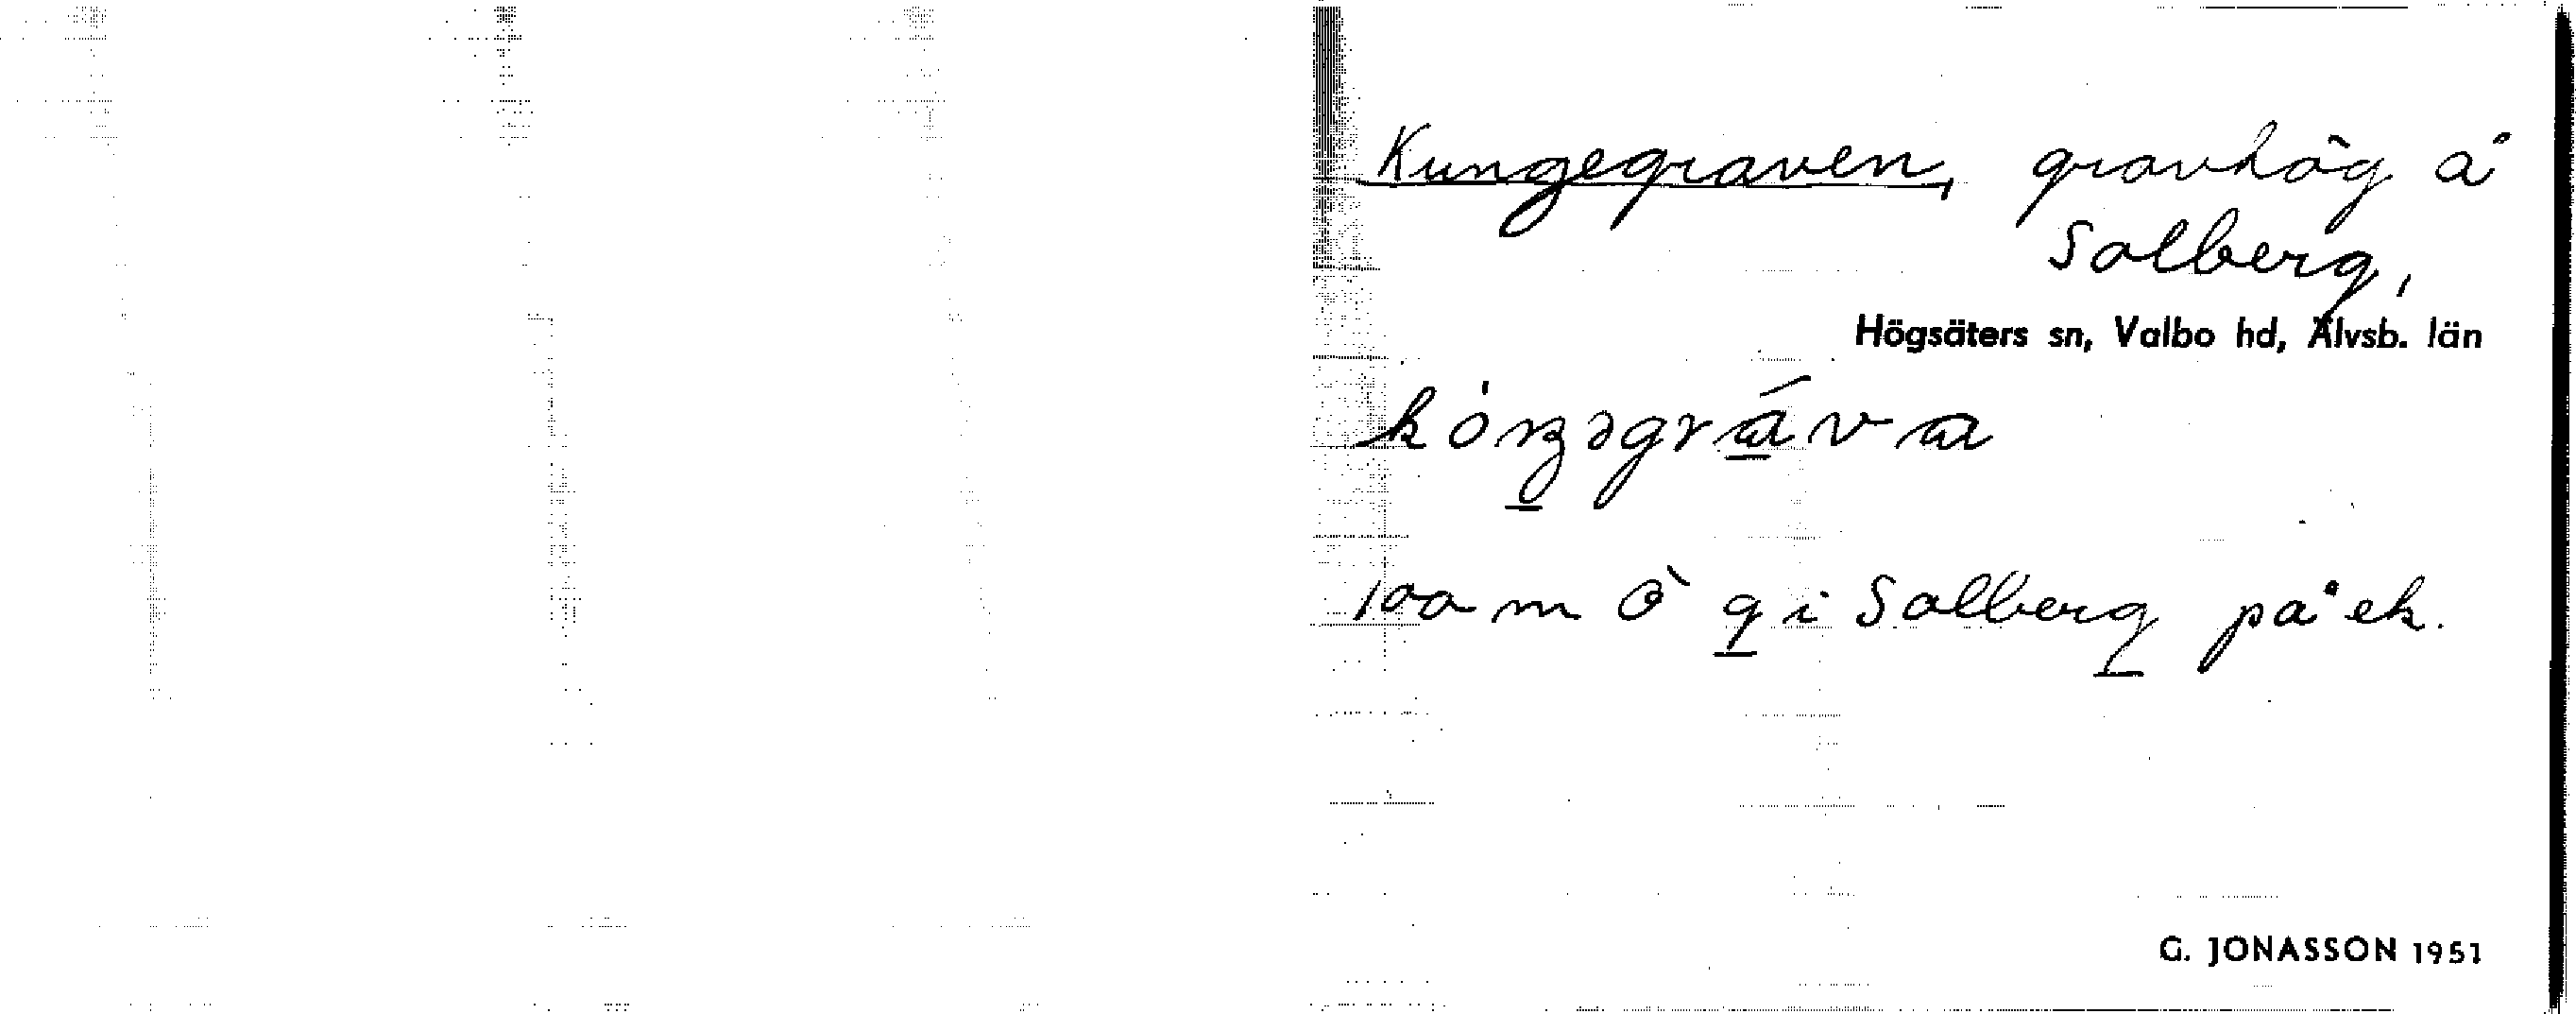 Kungegraven, gravhög å
Solberg,
Högsäters sn, Valbo hd, Älvsb. län
100 m Ö g i Solberg på ek.
G. JONASSON 1951